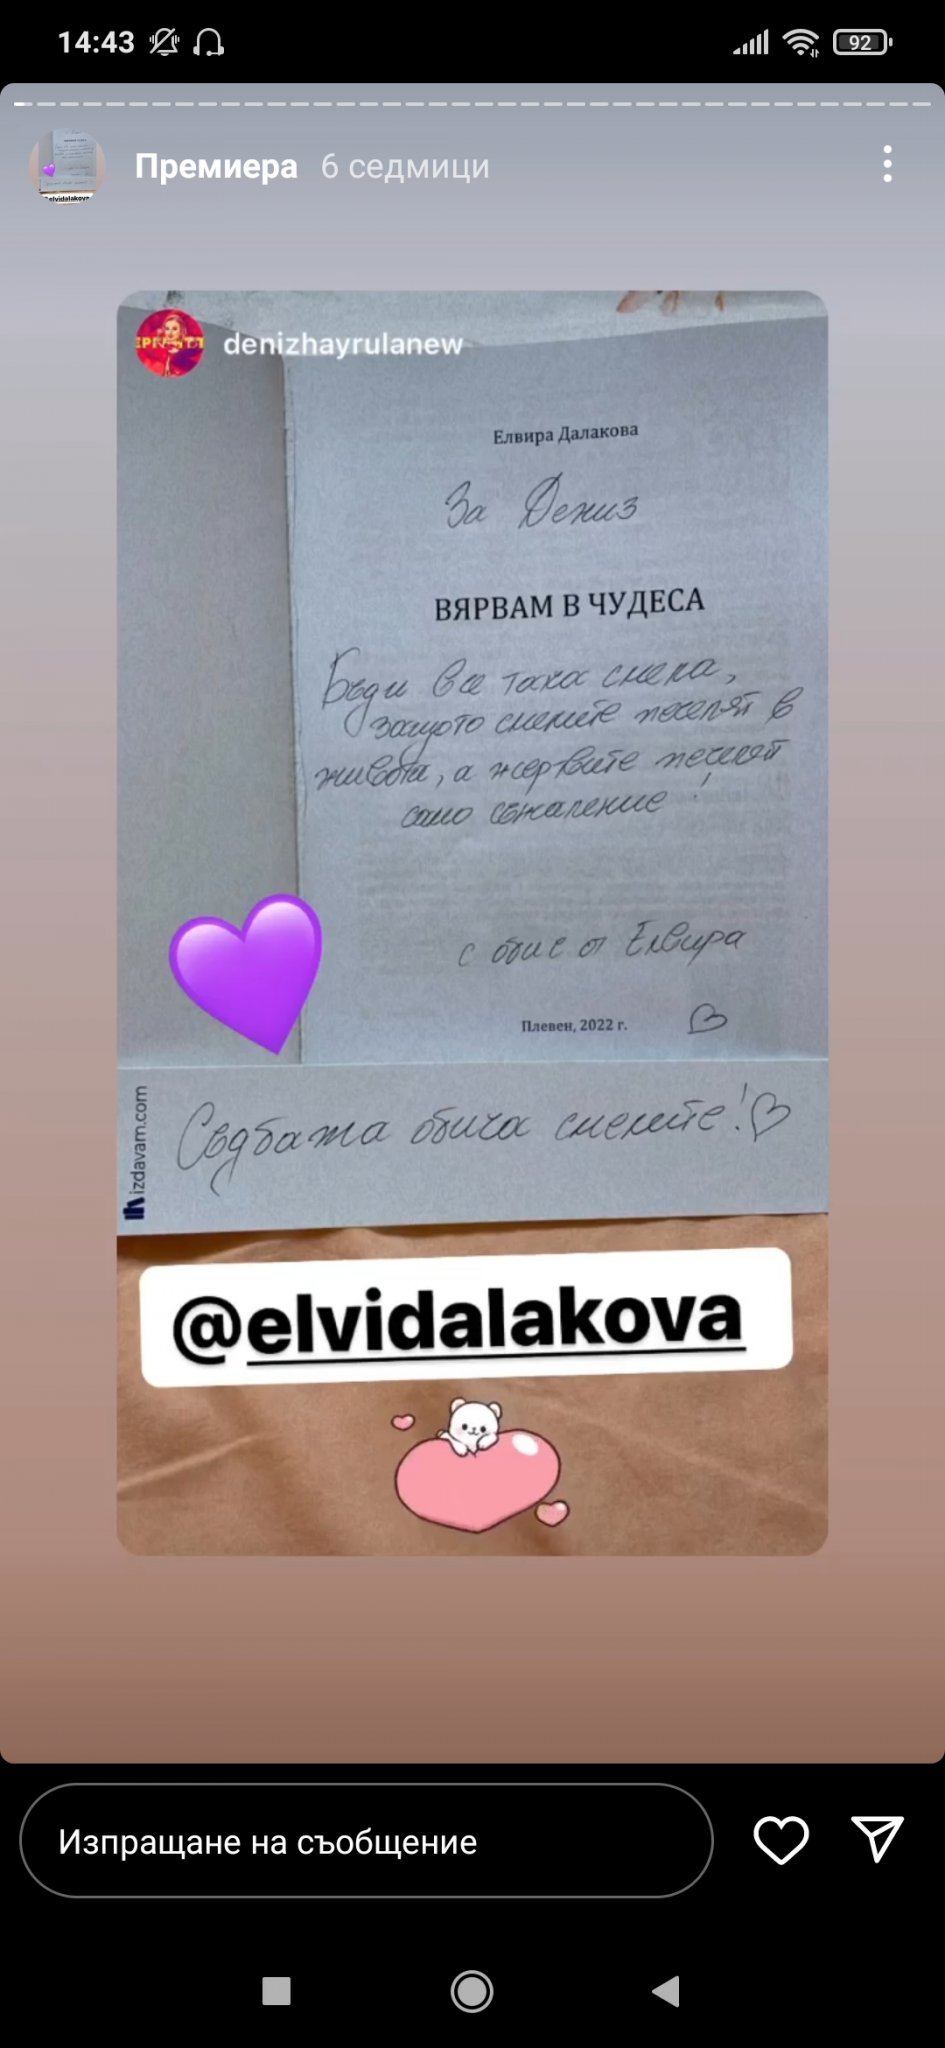 14:43
92
Премиера 6 седмици
denizhayrulanew
Елвира Далакова
За Дениз
ВЯРВАМ В ЧУДЕСА
Бъди все така смела,
защото смелите печелят в
живота, а жертвите печелят
само съжаление!
с обич от Елвира
Плевен, 2022 г.
izdavam.com
Съдбата обича смелите!
@elvidalakova
Изпращане на съобщение